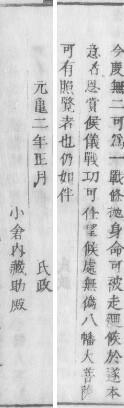 今度無二可為一戦条抛身命可被走廻候於遂本
意者恩賞候儀戦功可任望候處無偽八幡大菩薩
可有照覧者也仍如件
元亀二年正月
氏政
小倉内藏助殿